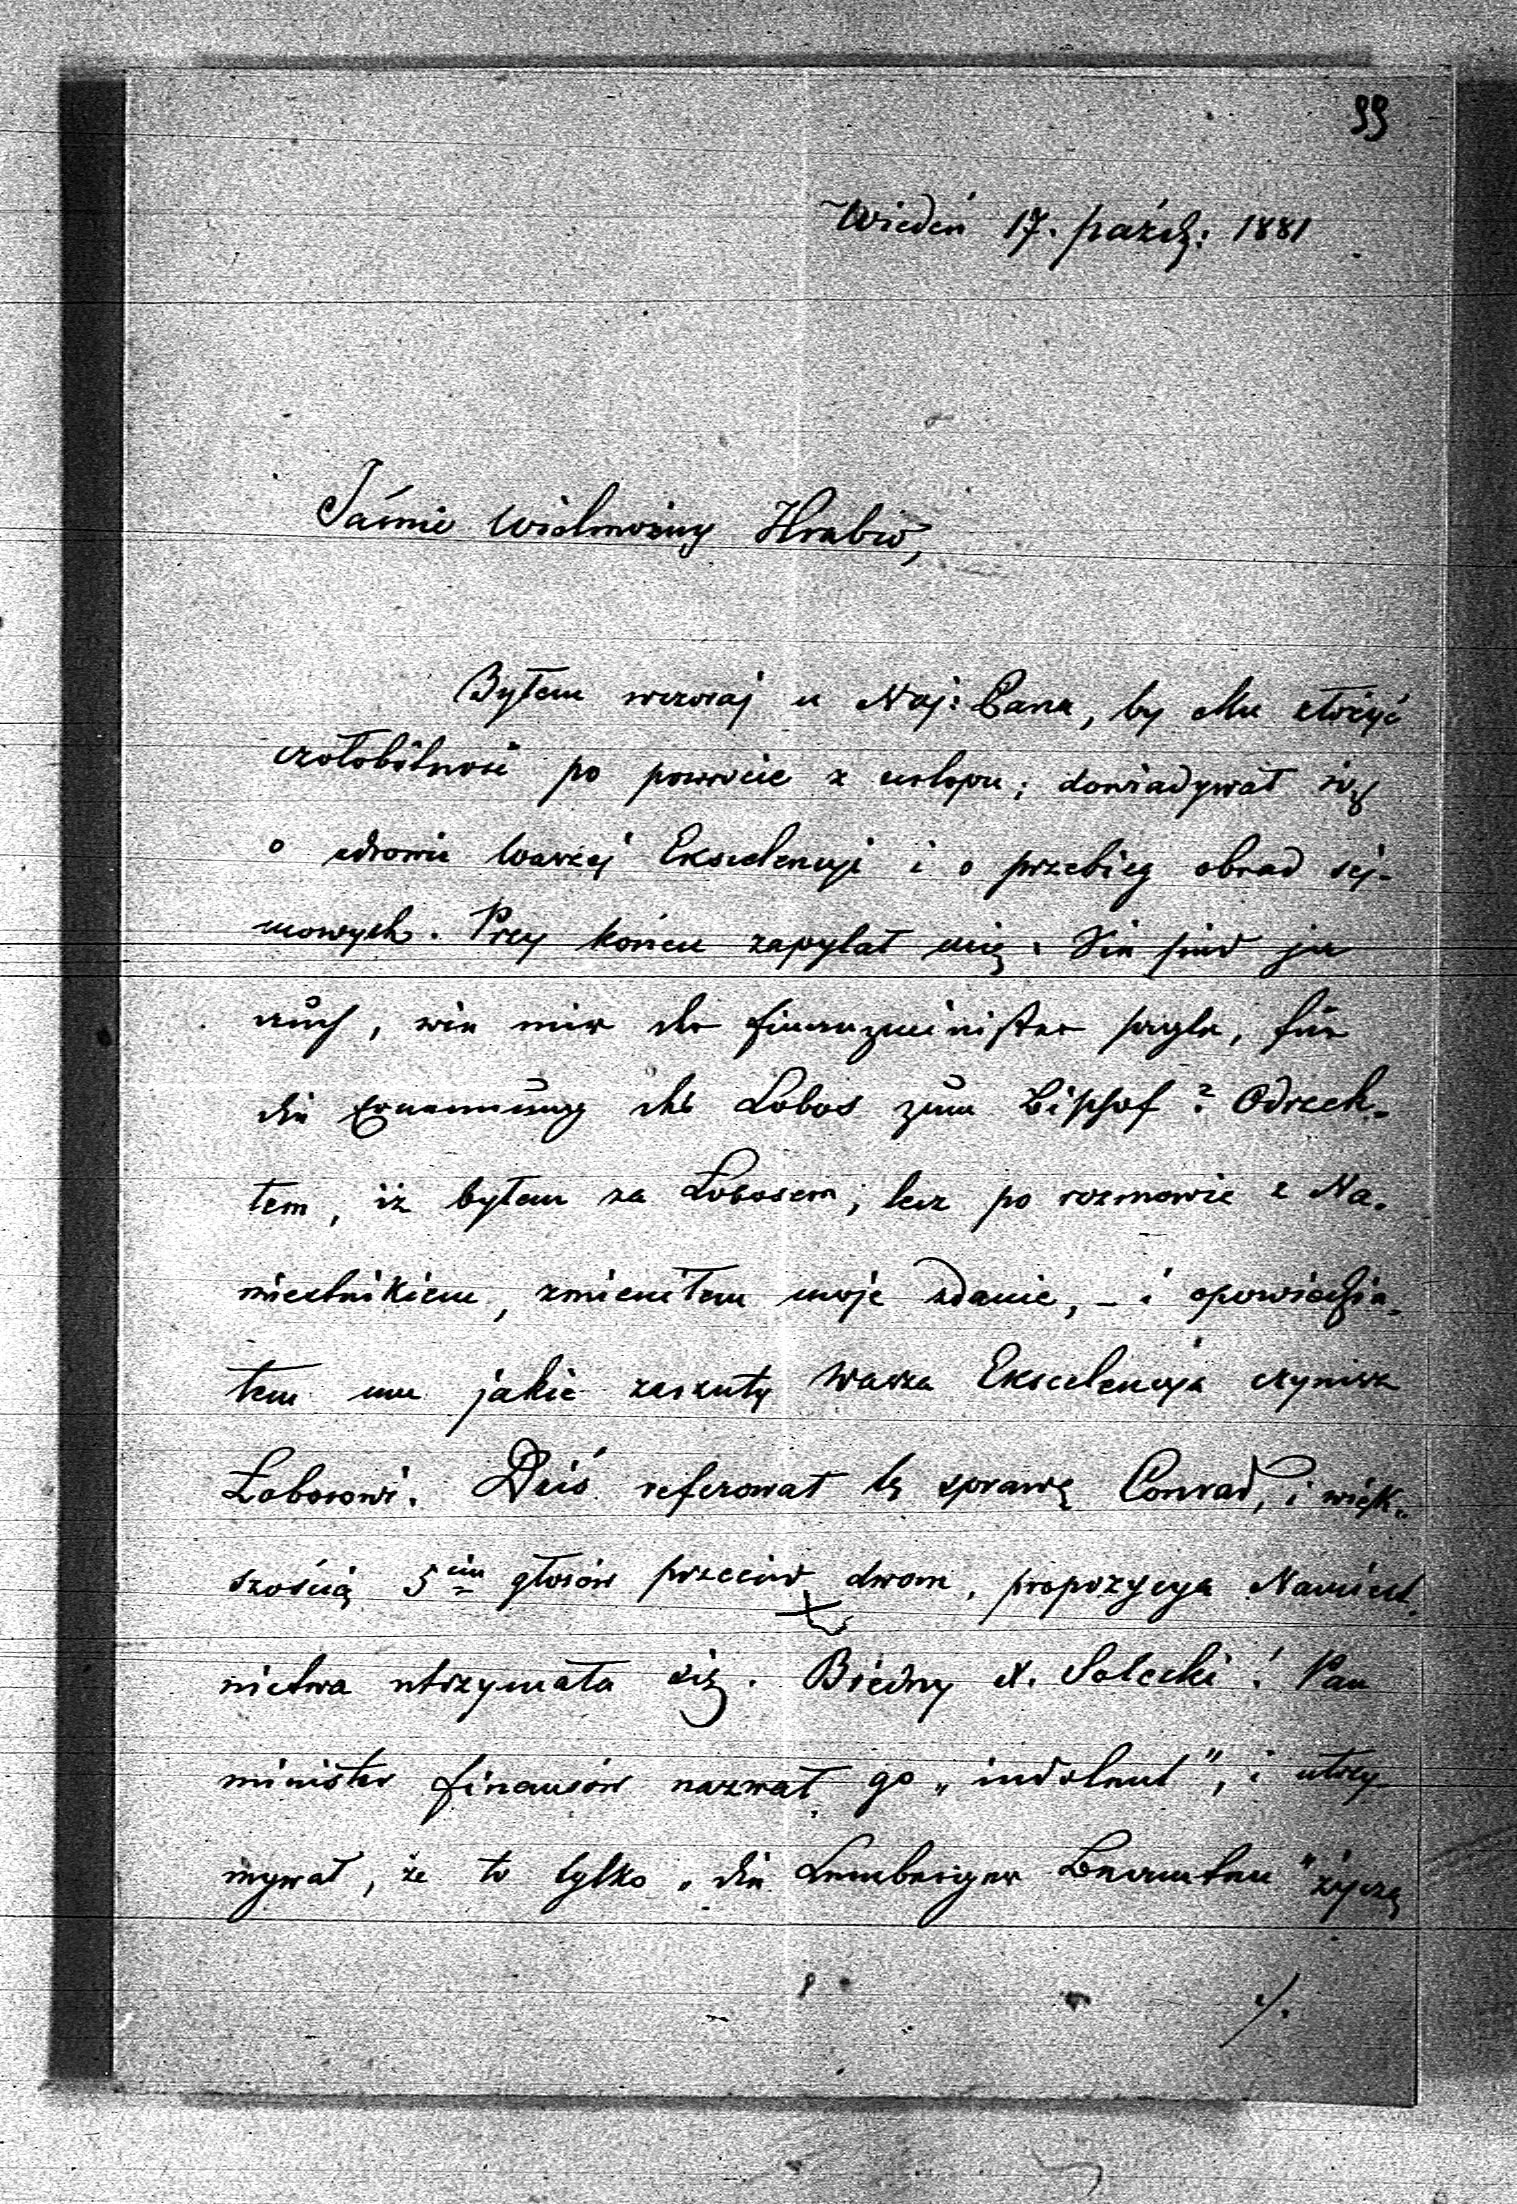 99
Wiedeń 17. paźdz: 1881
Jaśnie Wielmożny Hrabio,
Byłem wczoraj u Naj: Pana, by Mu złożyć
czołobitność po powrocie z urlopu; dowiadywał się
o zdrowie Waszej Ekscelencyi i o przebieg obrad sej-
mowych. Przy końcu zapytał mię: Sie sind ja
auch, wie mir der Finanzminister sagte, für
die Ernennung des Łobos zum Bischof? Odrzek-
łem, iż byłem za Łobosem; lecz po rozmowie z Na-
miestnikiem, zmieniłem moje zdanie, – i opowiedzia-
łem mu jakie zarzuty Wasza Ekscelencyja czynisz
Łobosowi. Dziś referował tę sprawę Conrad, i więk-
szością 5ciu głosów przeciw dwom, propozycya Namiest-
nictwa utrzymała się. Biedny X. Solecki! Pan
minister finansów nazwał go „indolent", i utrzy-
mywał, że to tylko „die Lemberger Beamten" życzą
./.